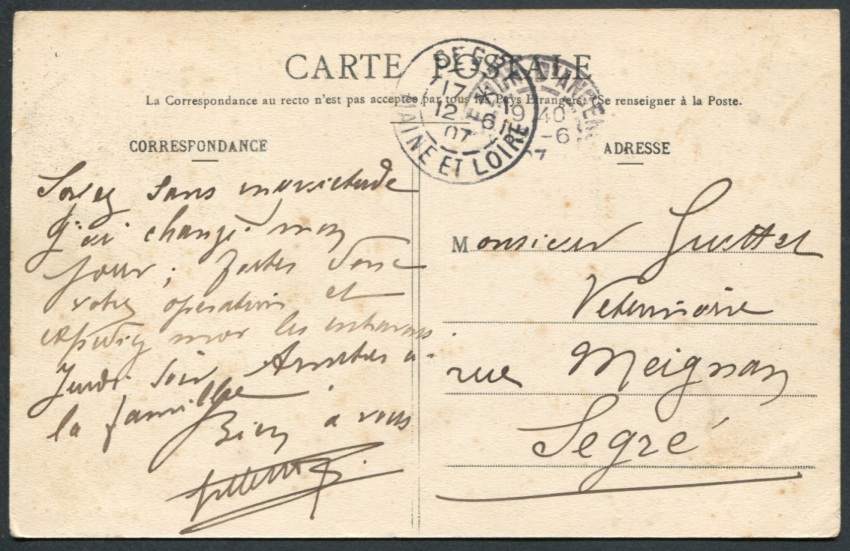 CARTE POSTALE
La Correspondance au recto n'est pas acceptée par tous les Pays Etrangers (Se renseigner à la Poste.
CORRESPONDANCE
ADRESSE
SEGRÉ
12 6
07
MAINE ET LOIRE
40
-6
Soyez sans inquietude
j'ai changé mon
jour; faites donc
votre operation et
mor les
Jeudi soir Amities à
la famille
Bien à vous
Monsieur Guittet
Veterinaire
rue Meignan
Segré